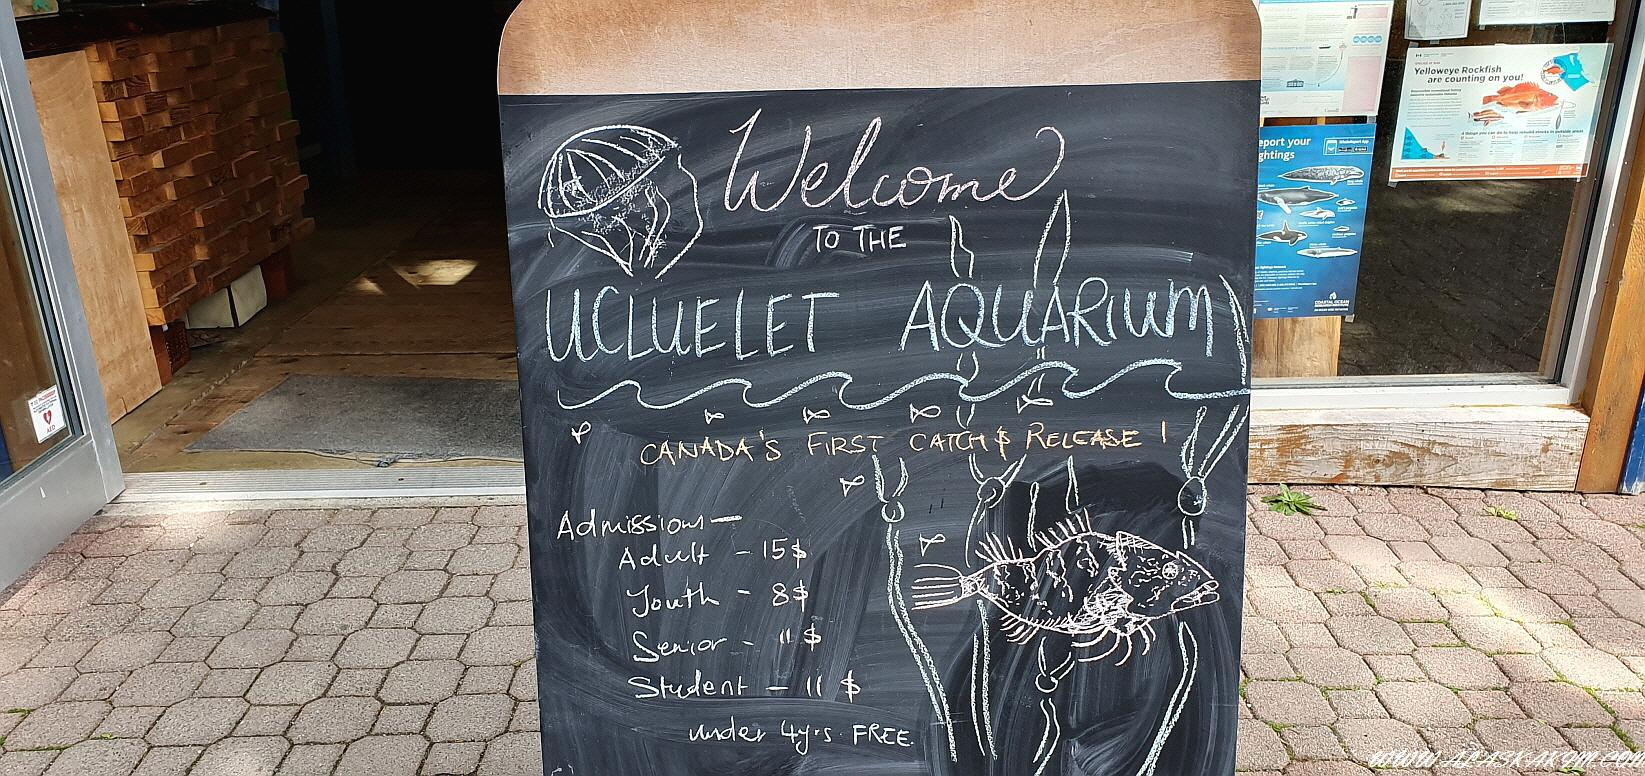 Welcome
TO THE
UCLUELET AQUARIUM
CANADA'S FIRST CATCH & RELEASE!
Admission—
Adult - 15$
Youth - 8$
Senior - 11$
Student - 11$
under 4yrs. FREE.
Yelloweye Rockfish
are counting on you!
eport your
ghtings
COASTAL OCEAN
AED
WWW.ALASKAKYM.COM